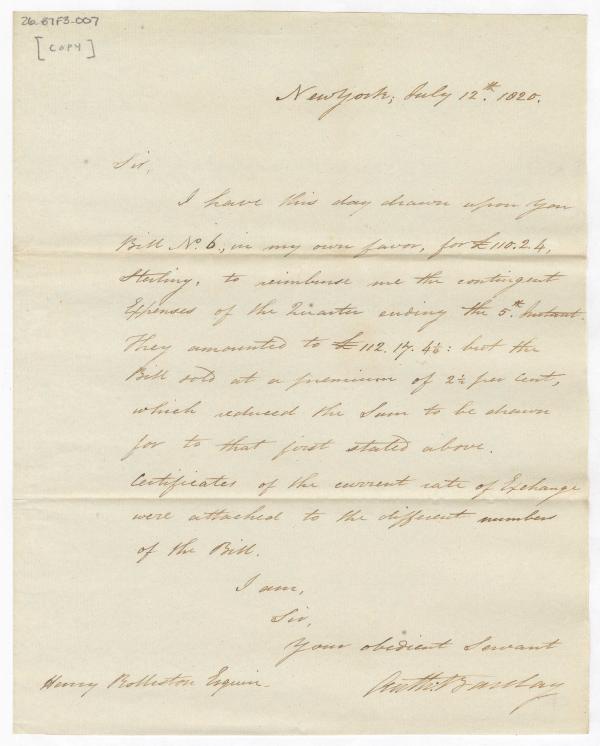 26-87F3-007
[COPY]
New York, July 12th. 1820.
Sir,
I have this day drawn upon you
Bill No. 6, in my own favor, for £110.2.4,
Sterling, to reimburse me the contingent
Expenses of the Quarter ending the 5th. Instant.
They amounted to £112.17.4½: but the
Bill sold at a premium of 2½ per Cent,
which reduced the Sum to be drawn
for to that first stated above.
Certificates of the current rate of Exchange
were attached to the different numbers
of the Bill.
I am,
Sir,
Your obedient Servant
Henry Rolleston Esquire
Anth: Barclay